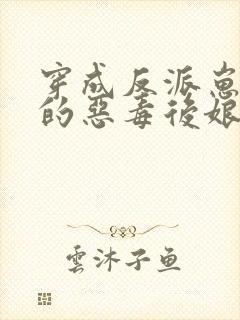 穿成反派崽
的惡毒後娘
雲沐子鱼